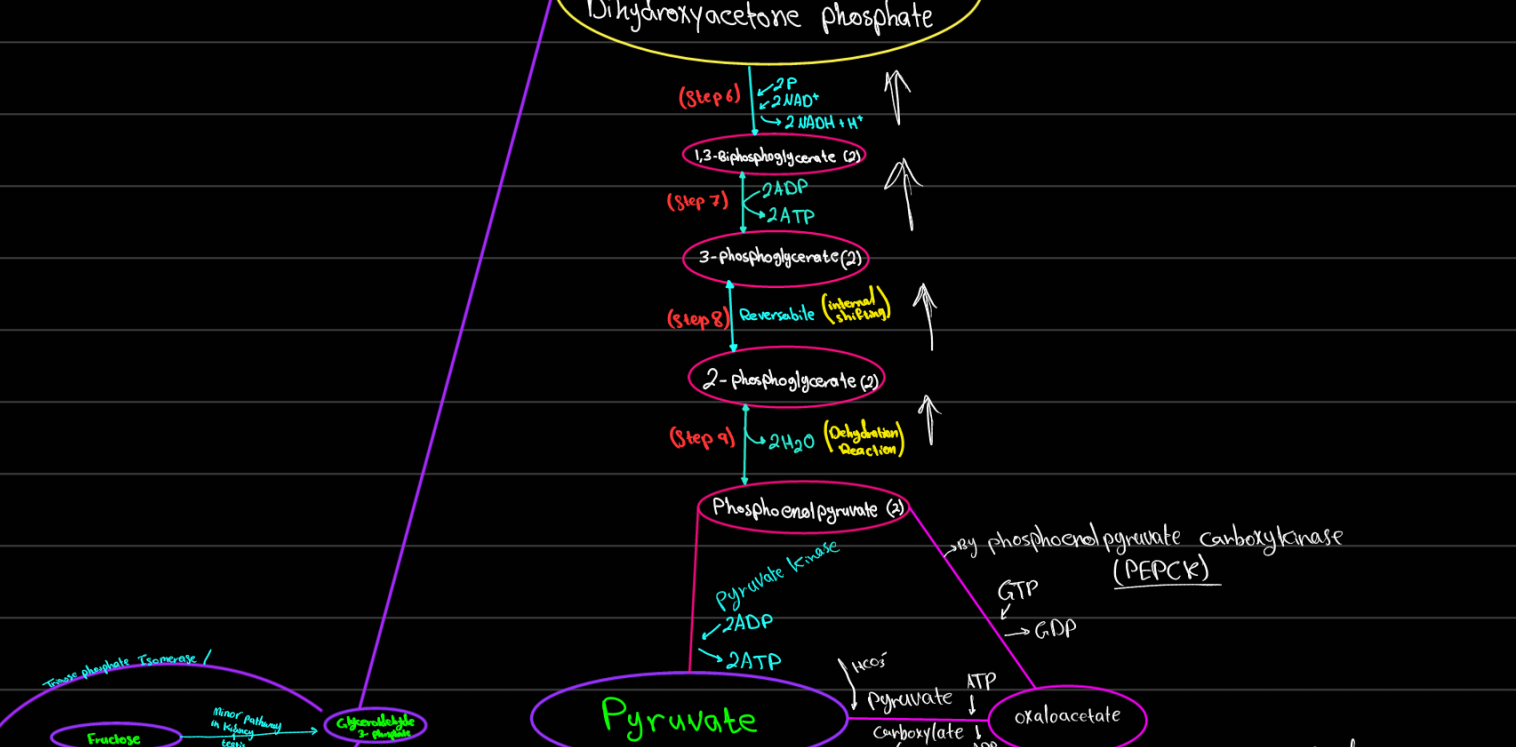 Dihydroxyacetone phosphate
(Step 6)
2P
2NAD+
2NADH + H+
1,3-Biphosphoglycerate (2)
(Step 7)
2ADP
2ATP
3-phosphoglycerate (2)
(Step 8)
Reversabile
(internal
shifting)
2-phosphoglycerate (2)
(Step 9)
2H2O
(Dehydration
Reaction)
Phosphoenolpyruvate (2)
By phosphoenolpyruvate carboxykinase
(PEPCK)
Pyruvate kinase
GTP
GDP
2ADP
2ATP
HCO3-
Pyruvate
ATP
carboxylate
Pyruvate
oxaloacetate
Triose phosphate Isomerase
Minor Pathway
in Kidney
testis
Fructose
Glyceraldehyde
3-phosphate